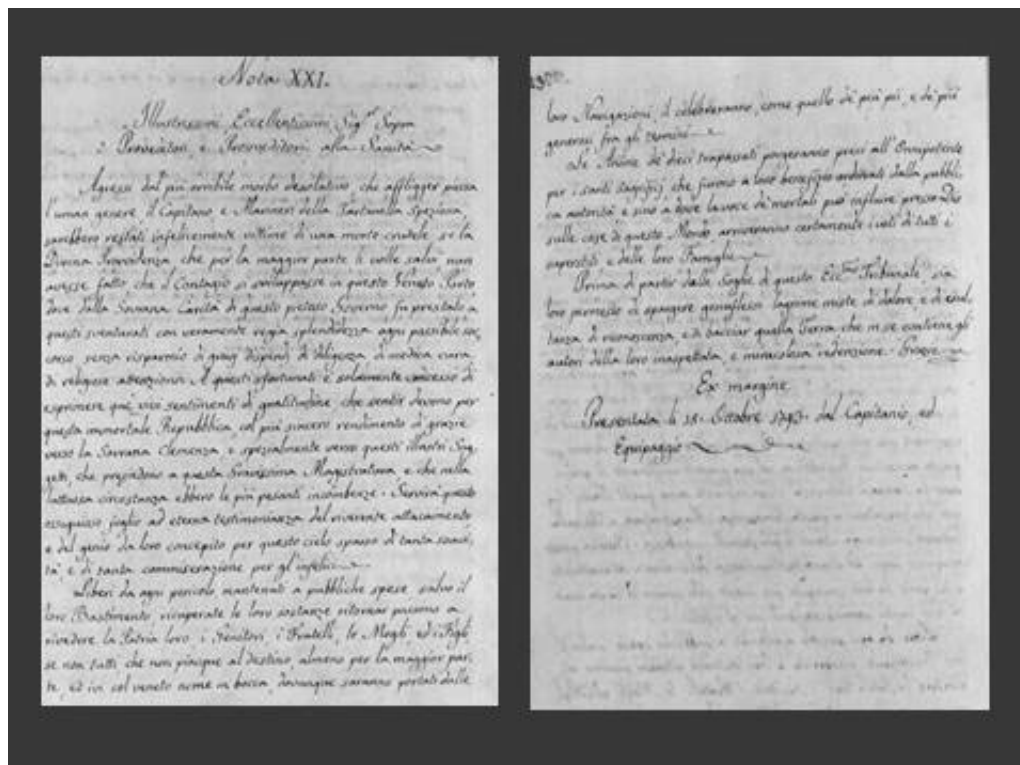 Nota XXI.
Illustrissimi Eccellentissimi Sig.ri Sopra
Provveditori, e Provveditori alla Sanità
Aggressi dal più orribile morbo desolativo, che affligger possa
l'uman genere il Capitano e Marineri della Tartanella Speziosa,
sarebbero restati infelicemente vittime di una morte crudele, se la
Divina Provvidenza che per la maggior parte li volle salvi non
avesse fatto, che il Contagio si sviluppasse in questo Veneto Porto
dove dalla Sovrana Carità di questo pietoso Governo fu prestato a
questi sventurati con veramente regia splendidezza ogni possibile soc,
corso senza risparmio di gravi dispendj di diligenza di medica cura
di religiose attenzioni. A questi sfortunati è solamente concesso di
esprimere que' vivi sentimenti di gratitudine, che sentir devono per
questa immortale Repubblica, col più sincero rendimento di grazie
verso la Sovrana Clemenza, e spezialmente verso questi illustri Sog,
getti, che presiedono a questa Gravissima Magistratura, e che nella
luttuosa circostanza ebbero le più pesanti incombenze. Servirà questo
ossequioso foglio ad eterna testimonianza del riverente attacamento
e del genio da loro concepito per questo cielo sparso di tanta
tà, e di tanta commiserazione per gl'infelici
Liberi da ogni pericolo mantenuti a pubbliche spese, salvo il
loro Bastimento, ricuperate le loro sostanze ritornar possono a
rivedere la Patria loro, i Genitori, i Fratelli, le Mogli ed i Figli
se non tutti che non piacque al destino, almeno per la maggior par,
te, ed ivi col veneto nome in bocca, dovunque saranno portati dalle
loro Navigazioni, il celebreranno, come quello de' più pii, e de' più
generosi fra gli
Le Anime de' dieci trapassati porgeranno preci all'Onnipotente
per i santi suffragj che furono a loro benefizio ordinati dalla pubbli,
ca autorità e sino a dove la voce de' mortali può influire presso Dio
sulle cose di questo Mondo, arriveranno certamente i voti di tutti i
superstiti e delle loro Famiglie
Prima di partir dalle Soglie di questo Ecc.mo Tribunale sia
loro permesso di spargere genuflessi lagrime miste di dolore, e di esul,
tanza di riconoscenza, e di bacciar quella Terra che in se contiene gli
autori della loro inaspettata, e miracolosa redenzione. Grazie
Ex margine
Presentata li 18. Ottobre 1793. dal Capitanio, ed
Equipaggio